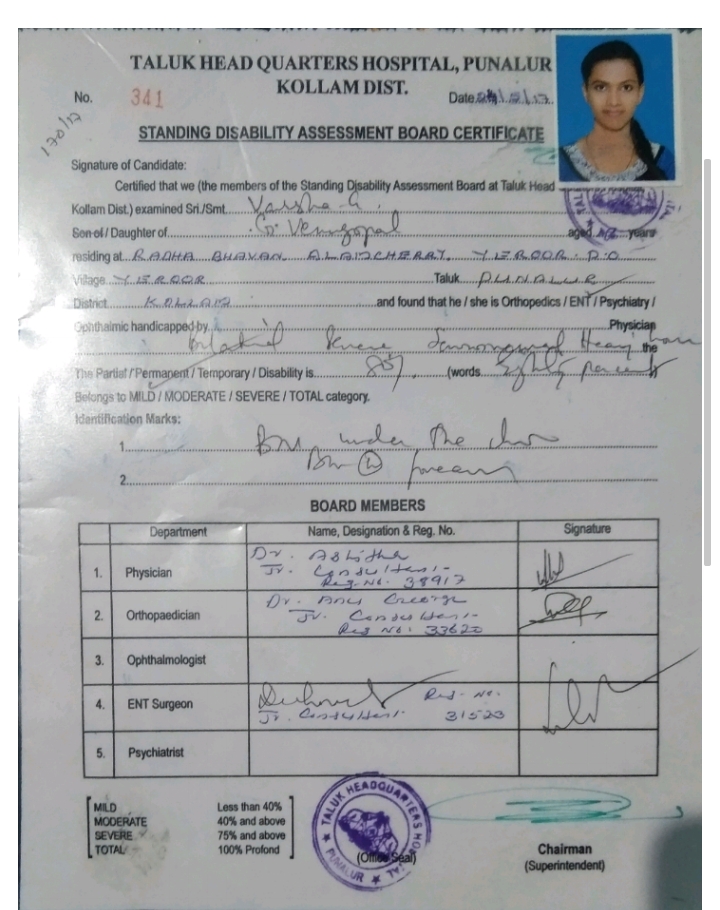 TALUK HEAD QUARTERS HOSPITAL, PUNALUR
KOLLAM DIST.
No. 341
Date
130/17
STANDING DISABILITY ASSESSMENT BOARD CERTIFICATE
Signature of Candidate:
Certified that we (the members of the Standing Disability Assessment Board at Taluk Head
Kollam Dist.) examined Sri./Smt. Varsha G.
Son of / Daughter of G. Venugopal aged years
residing at RADHA BHAVAN, ALANCHERRY, YEROOR P.O
Village YEROOR Taluk PUNALUR
District KOLLAM and found that he / she is Orthopedics / ENT / Psychiatry /
Ophthalmic handicapped by Physician
the
The Partial / Permanent / Temporary / Disability is 80% (words Eighty percent)
Belongs to MILD / MODERATE / SEVERE / TOTAL category.
Identification Marks:
1. under the chin
2.
BOARD MEMBERS
Department Name, Designation & Reg. No. Signature
1. Physician Dr.
Jr. Consultant
Reg. No. 38917
2. Orthopaedician Dr. George
Jr. Consultant
Reg No: 33620
3. Ophthalmologist
4. ENT Surgeon Reg. No.
Jr. Consultant 31523
5. Psychiatrist
MILD Less than 40%
MODERATE 40% and above
SEVERE 75% and above
TOTAL 100% Profond
TALUK HEADQUARTERS HOSPITAL
PUNALUR
(Office Seal)
Chairman
(Superintendent)